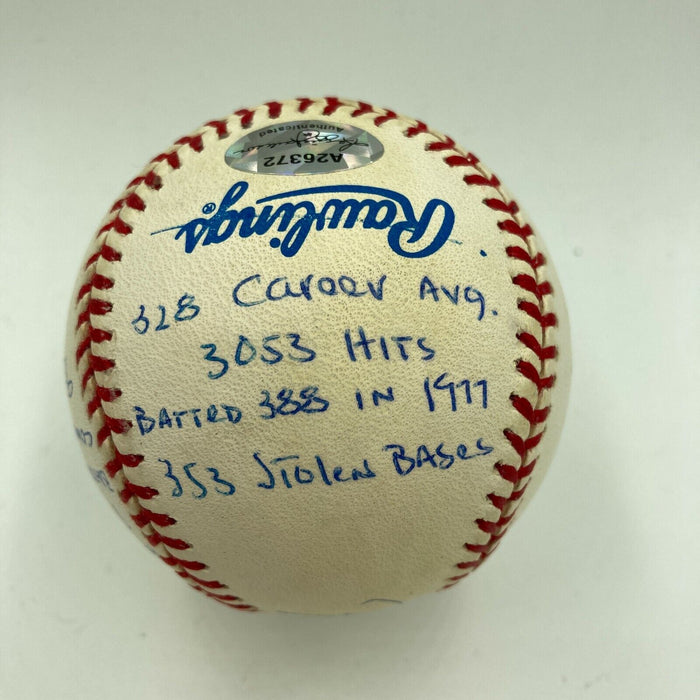 A26372
Authenticated
Rawlings®
328 Career Avg.
3053 Hits
Batted 388 in 1977
353 Stolen Bases